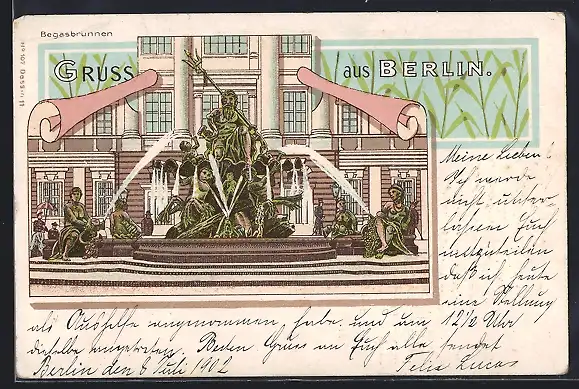 Begasbrunnen
GRUSS aus BERLIN.
Meine Lieben!
Ich werde
nicht unter
lassen Euch
mitzuteilen
daß ich heute
eine Stellung
als Aushilfe angenommen habe und um 12½ Uhr
dieselbe angetreten. Besten Gruss an Euch alle sendet
Berlin den 8 Juli 1902 Felix Lucas